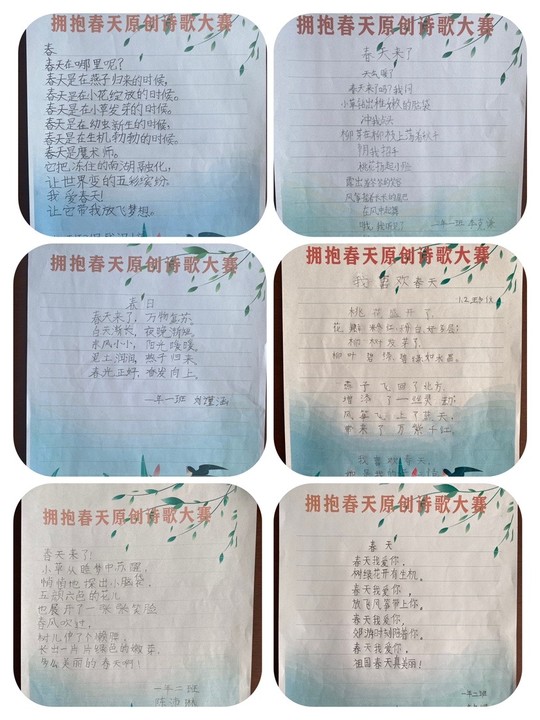 拥抱春天原创诗歌大赛
春
春天在哪里呢?
春天是在燕子归来的时候,
春天是在小花绽放的时候。
春天是在小草发芽的时候,
春天是在幼虫新生的时候,
春天是在生机勃勃的时候。
春天是魔术师。
它把冻住的南湖融化,
让世界变的五彩缤纷。
我爱春天!
让它带我放飞梦想。
拥抱春天原创诗歌大赛
春天来了
天气暖了
春天来了吗?我问
小草钻出 的脑袋
冲我点头
柳芽在柳枝上荡着秋千
朝我招手
桃花扬起小脸
露出 的笑容
风筝 着长长的尾巴
在风中起舞
哦,我明白了
一年一班
拥抱春天原创诗歌大赛
春日
春天来了,万物复苏,
白天渐长,夜晚渐短,
东风小小,阳光暖暖,
泥土润润,燕子归来,
春光正好,奋发向上。
一年一班 刘
拥抱春天原创诗歌大赛
我喜欢春天
1.2
桃花盛开了,
花
柳树发芽了,
柳叶
燕子飞回了北方,
增添了一丝灵动,
风筝飞上了蓝天,
带来了万紫千红,
我喜欢春天,
拥抱春天原创诗歌大赛
春天来了!
小草从睡梦中苏醒,
悄悄地探出小脑袋,
五颜六色的花儿
也展开了一张张笑脸
春风吹过,
树儿伸了个懒腰,
长出一片片绿色的嫩芽,
多么美丽的春天啊!
一年二班
拥抱春天原创诗歌大赛
春天
春天我爱你,
树绿花开有生机。
春天我爱你,
放飞风筝带上你。
春天我爱你,
郊游时刻陪着你。
春天我爱你,
祖国春天真美丽!
一年二班